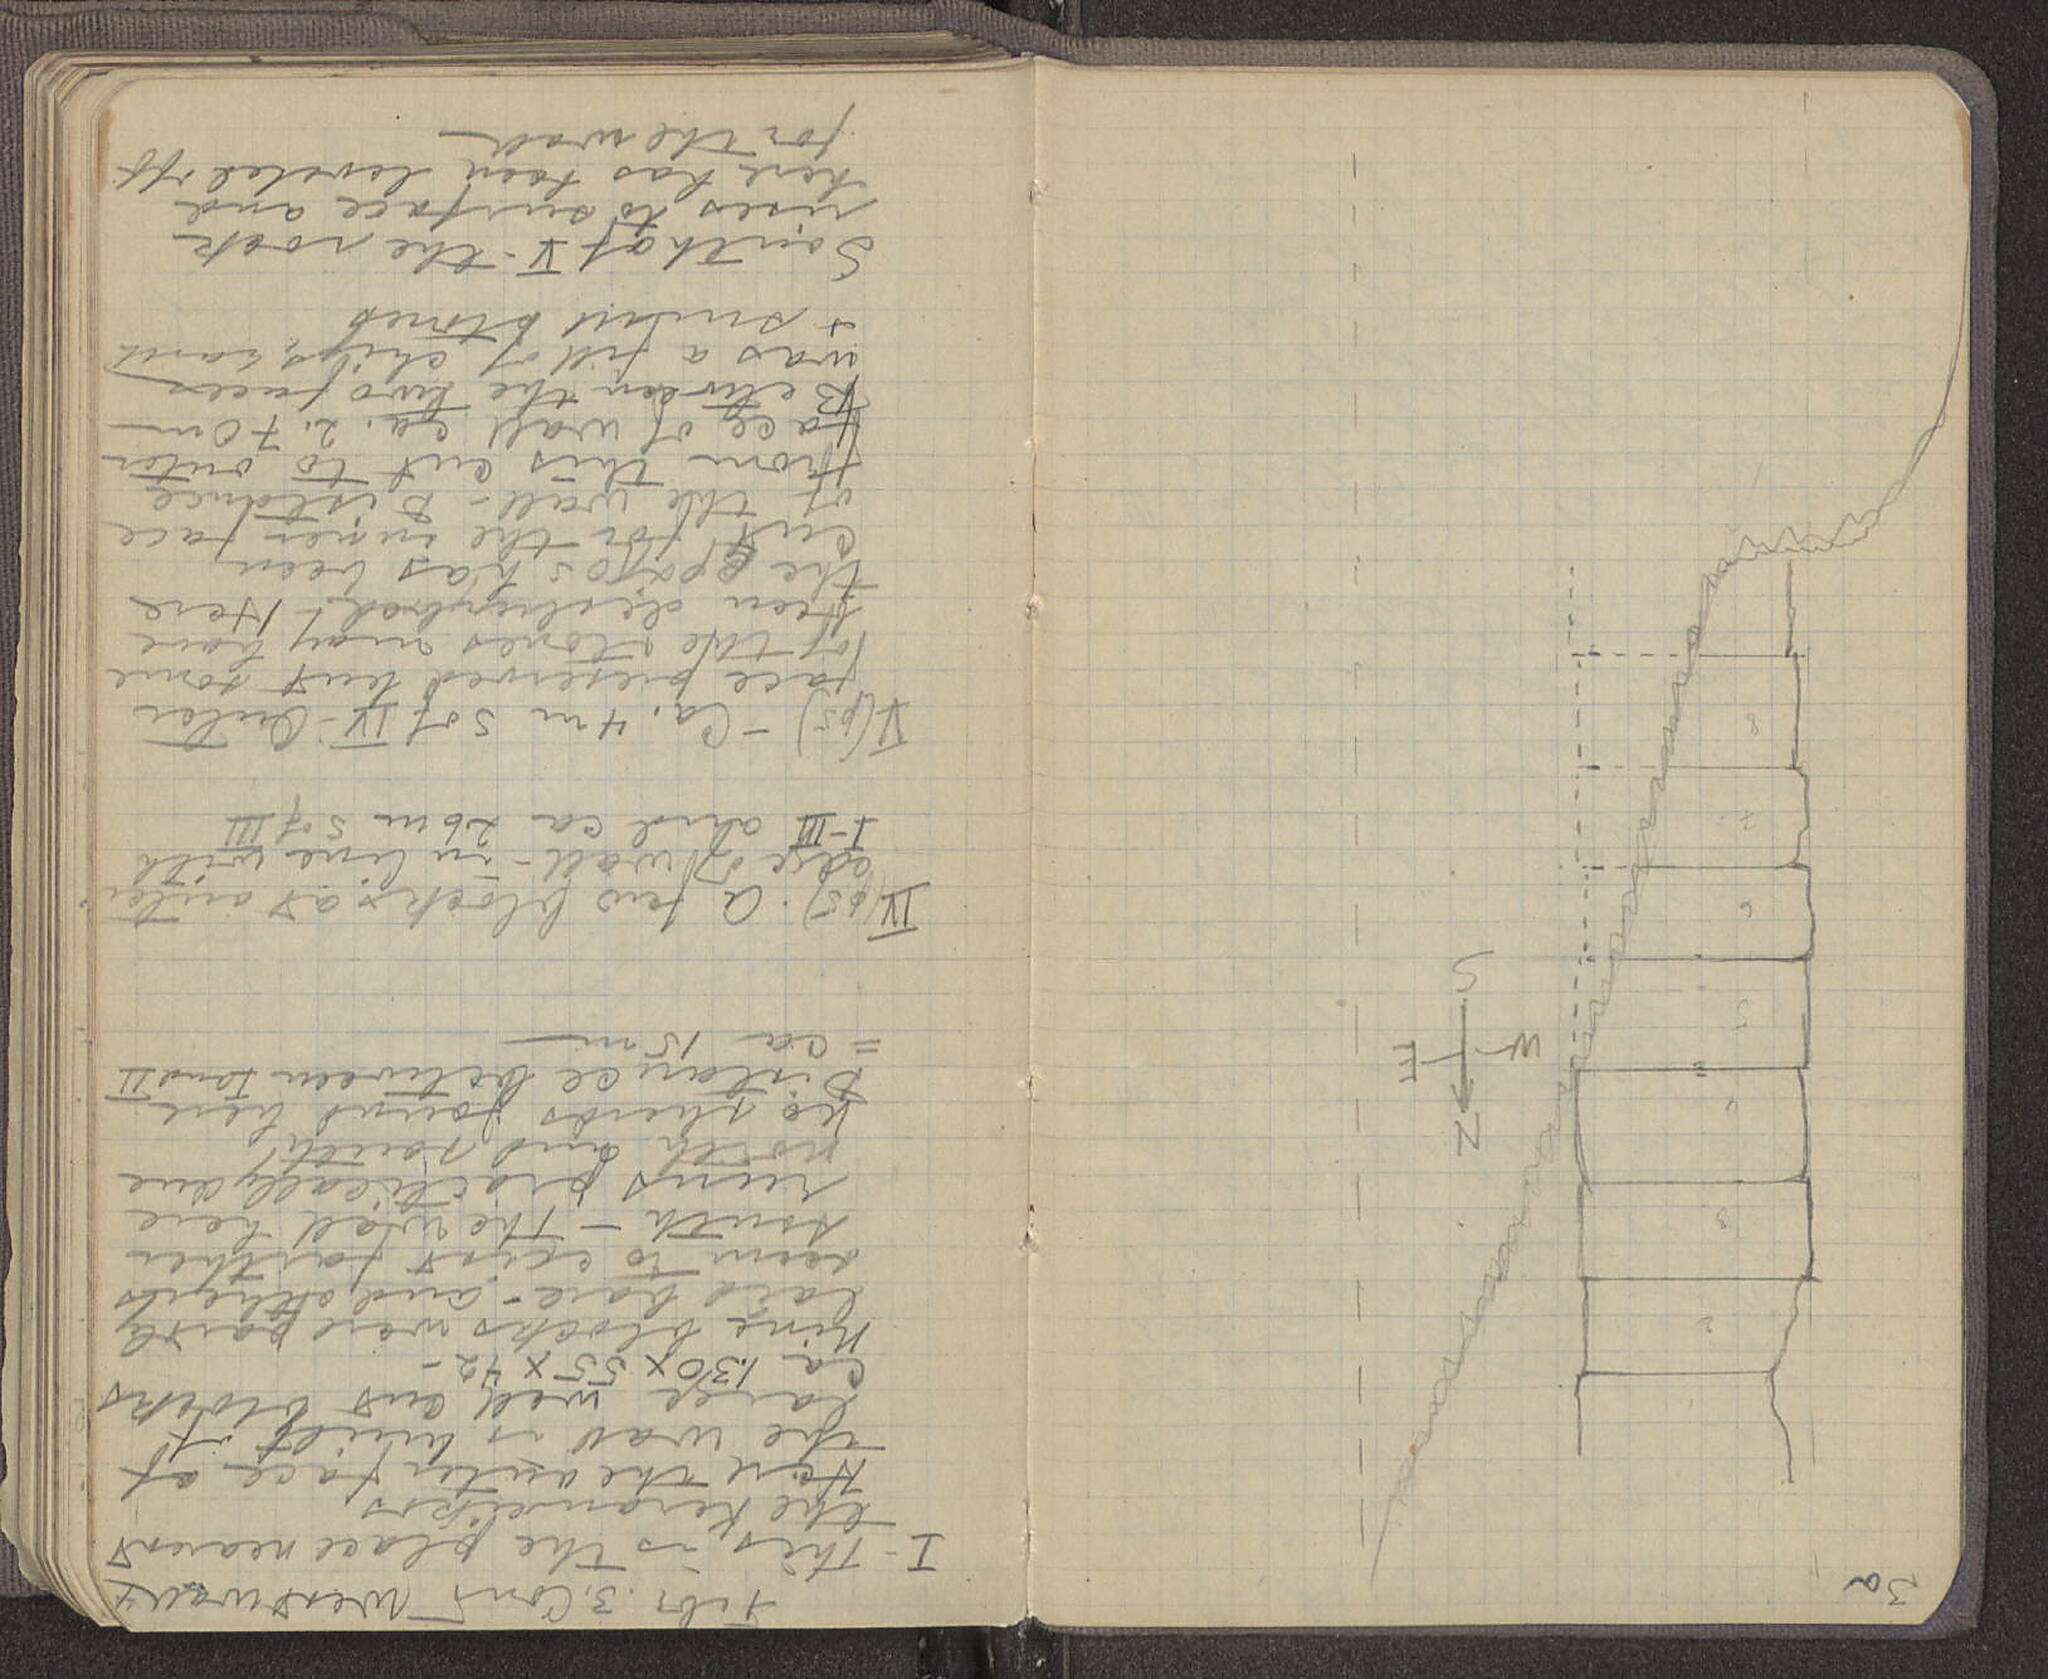 3a
2
3
4
5
6
7
8
N
W E
S
Febr. 3. Cont West wall
I - This is the place nearest
the Kerameikos
Here the outer face of
the wall is built of
large well cut blocks
ca 1.30 x 55 x 42 -
Nine blocks were partly
laid bare - and others
seem to exist farther
south - The wall here
runs practically due
north and south.
No sherds found here
Distance between I and II
= ca 15 m
IV (p5). A few blocks as outer
edge of wall - in line with
I-III and ca 26 m S of III
V (p5) - Ca. 4 m S of IV - Outer
face preserved but some
of the stones may have
been disturbed - Here
the βράχος has been
cut for the inner face
of the wall - Distance
from this cut to outer
face of wall ca. 2.70 m
Between the two faces
was a fill of chips, earth
+ small stones
South of V - the rock
rises to surface and
here has been leveled off
for the wall